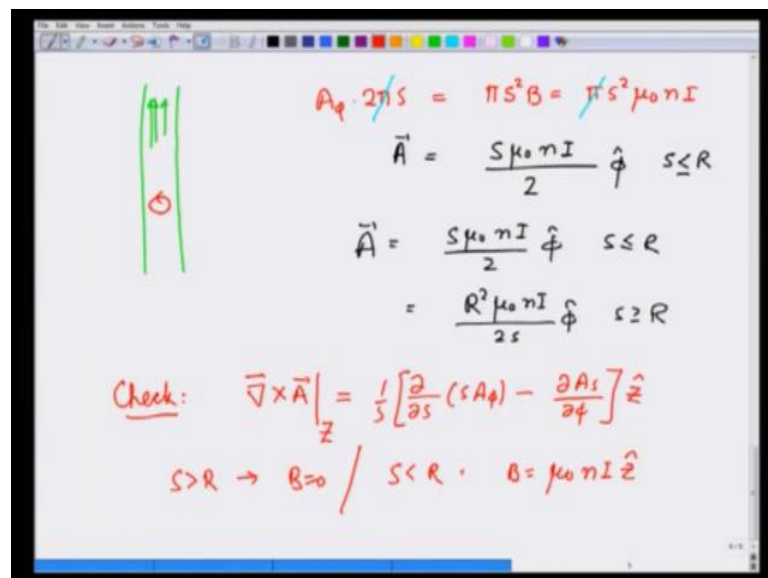 File Edit View Insert Actions Tools Help
A_φ · 2πs = πs²B = πs²μ₀nI
A⃗ = sμ₀nI / 2 φ̂ s ≤ R
A⃗ = sμ₀nI / 2 φ̂ s ≤ R
= R²μ₀nI / 2s φ̂ s ≥ R
Check: ∇⃗ × A⃗ |_Z = 1/s [∂/∂s (sA_φ) − ∂A_s/∂φ] ẑ
s > R → B=0 / s < R · B = μ₀nI ẑ